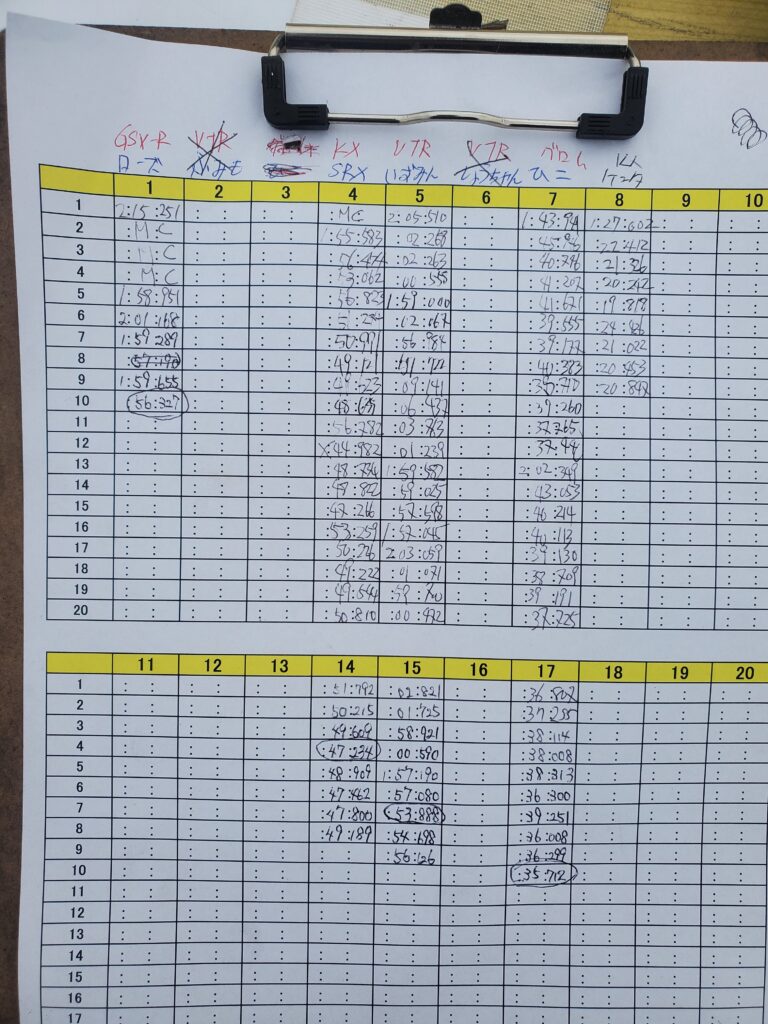 GSX-R VTR KX VTR VTR KX
ローズ SRX いずみん ひょうちゃん ケンタ
1 2 3 4 5 6 7 8 9 10
1 2:15:251 :MC 2:05:510 1:43:94 1:27:602
2 :M:C 1:55:583 :02:268 :45:946 :22:412
3 :M:C :02:263 :40:796 :21:326
4 :M:C :00:555 :41:202 :20:242
5 1:58:951 :56:823 1:59:000 :41:671 :19:818
6 2:01:168 :02:067 :39:555 :24:426
7 1:59:289 :50:991 :56:984 :39:177 :21:022
8 :57:190 :49:121 :40:383 :20:453
9 1:59:655 :49:523 :09:141 :20:842
10 :56:327 :06:437 :39:260
11 :56:282 :03:763 :37:765
12 :44:982 :01:239
13 :48:734 1:59:582 2:02:349
14 :59:025 :43:053
15 :47:266 :57:598 :46:214
16 :53:259 1:57:045 :40:113
17 :50:226 2:03:059 :39:130
18 :49:222 :01:071 :38:709
19 :49:544 :39:191
20 :50:810 :00:972 :37:725
11 12 13 14 15 16 17 18 19 20
1 :51:792 :02:821 :36:802
2 :50:215 :01:725 :37:255
3 :49:609 :58:921 :38:114
4 :47:234 :00:590 :38:008
5 :48:909 1:57:190 :38:313
6 :47:462 :57:080 :36:300
7 :47:800 :53:888 :39:251
8 :49:189 :54:698 :36:008
9 :56:126 :36:299
10 :35:712
11
12
13
14
15
16
17